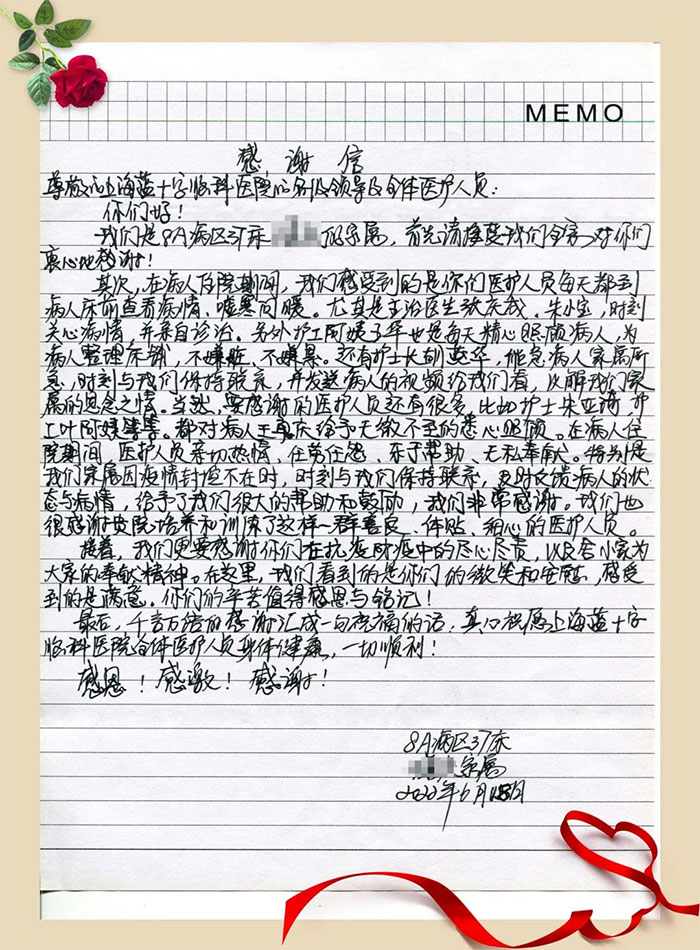 MEMO
感谢信
尊敬的上海蓝十字脑科医院的各级领导及全体医护人员：
你们好！
我们是8A病区37床 的家属，首先请接受我们全家对你们
衷心地感谢！
其次，在病人住院期间，我们感受到的是你们医护人员每天都到
病人床前查看病情、嘘寒问暖。尤其是主治医生 朱小宝，时刻
关心病情，并亲自诊治。另外护工阿姨 也是每天精心照顾病人，为
病人整理床铺，不嫌脏，不嫌臭。还有护士长胡燕华，能急病人家属所
急，时刻与我们保持联系，并发送病人的视频给我们看，以解我们家
属的思念之情。当然，要感谢的医护人员还有很多，比如护士朱亚 护
工叶阿姨等等。都对病人王 庆给予无微不至的悉心照顾。在病人住
院期间，医护人员亲切热情、任劳任怨、乐于帮助、无私奉献。特别是
我们家属因疫情封控不在时，时刻与我们保持联系，及时反馈病人的状
态与病情，给予了我们很大的帮助和鼓励，我们非常感谢。我们也
很感谢贵院培养和训练了这样一群善良、体贴、细心的医护人员。
接着，我们更要感谢你们在抗疫防疫中的尽心尽责，以及舍小家为
大家的奉献精神。在这里，我们看到的是你们的微笑和安慰，感受
到的是满意。你们的辛苦值得感恩与铭记！
最后，千言万语的感谢汇成一句 的话：真心祝愿上海蓝十字
脑科医院全体医护人员身体健康，一切顺利！
感恩！感激！感谢！
8A病区37床
家属
2022年6月 日